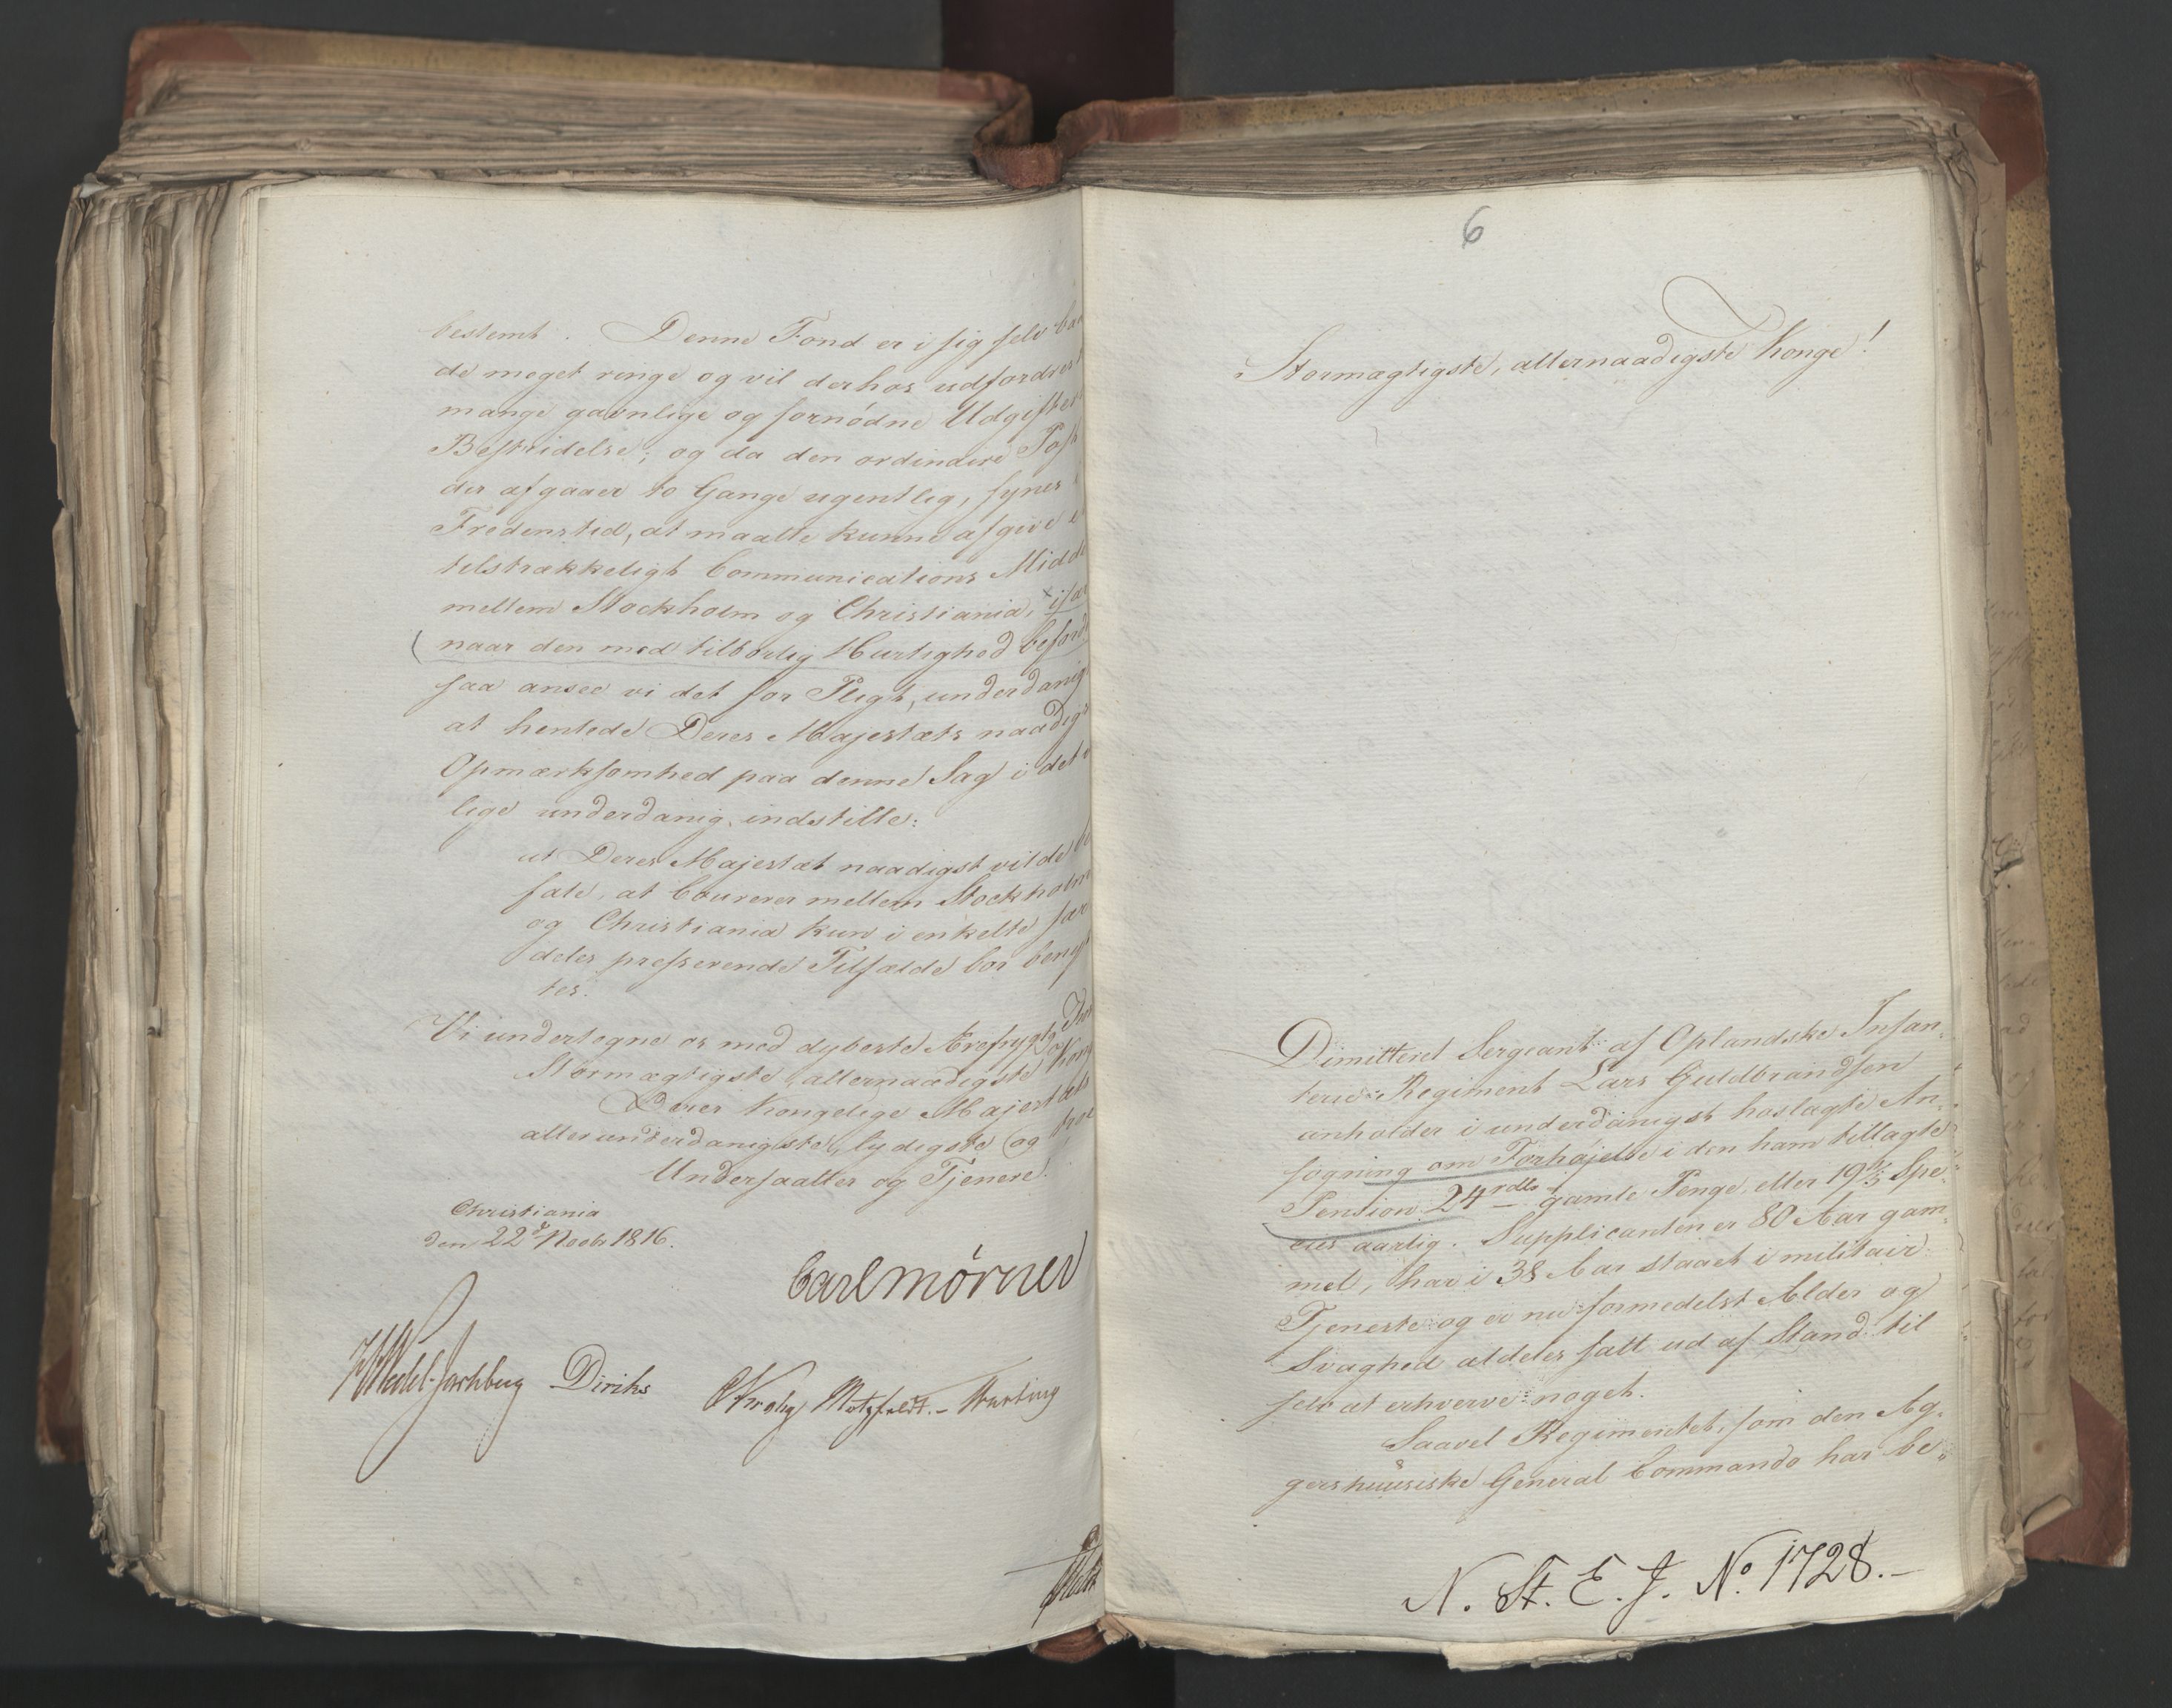 bestemt. Denne Fond er i sig selv baa
de meget ringe og vil derhos udfordres
mange gavnlige og fornödne Udgifter
Bestridelse; og da den ordinaire Post
der afgaaer to Gange ugentlig, synes
Fredenstid, at maatte kunne afgive
tilstrækkeligt Communications Midd
mellem Stockholm og Christiania, × især
( naar den med tilbørlig Hurtighed beford
saa ansee vi det for Pligt, underdanig
at henlede Deres Majestæts naadig
Opmærksomhed paa denne Sag i det vi
lige underdanig indstille:
at Deres Majestæt naadigst vilde be
fale, at Courerer mellem Stockholm
og Christiania kun i enkelte sær
deles presserende Tilfælde bør benyt
tes.
Vi undertegne os med dybeste Ærefrygt,
Stormægtigste, allernaadigste Kong
Deres Kongelige Majestæts
allerunderdanigste, lydigste og troe
Undersaatter og Tjenere.
Christiania
den 22de Novbr 1816.
Carl Mörner
Wedel-Jarlsberg Diriks Krohg Motzfeldt.- Hartung
6
Stormægtigste, allernaadigste Konge!
Dimitteret Sergeant af Oplandske Infan-
terie-Regiment Lars Guldbrandsen
anholder i underdanigst hoslagte An-
søgning om Forhøjelse i den ham tillagte
Pension 24 rdlr gamle Penge, eller 19 1/5 Spe-
cies aarlig. Supplicanten er 80 Aar gam-
mel, har i 38 Aar staaet i militair
Tjeneste og er nu formedelst Alder og
Svaghed aldeles satt ud af Stand til
selv at erhverve noget.
Saavel Regimentet, som den Ag-
gershuusiske General Commando har be-
N. St. E. J. No. 1728.-